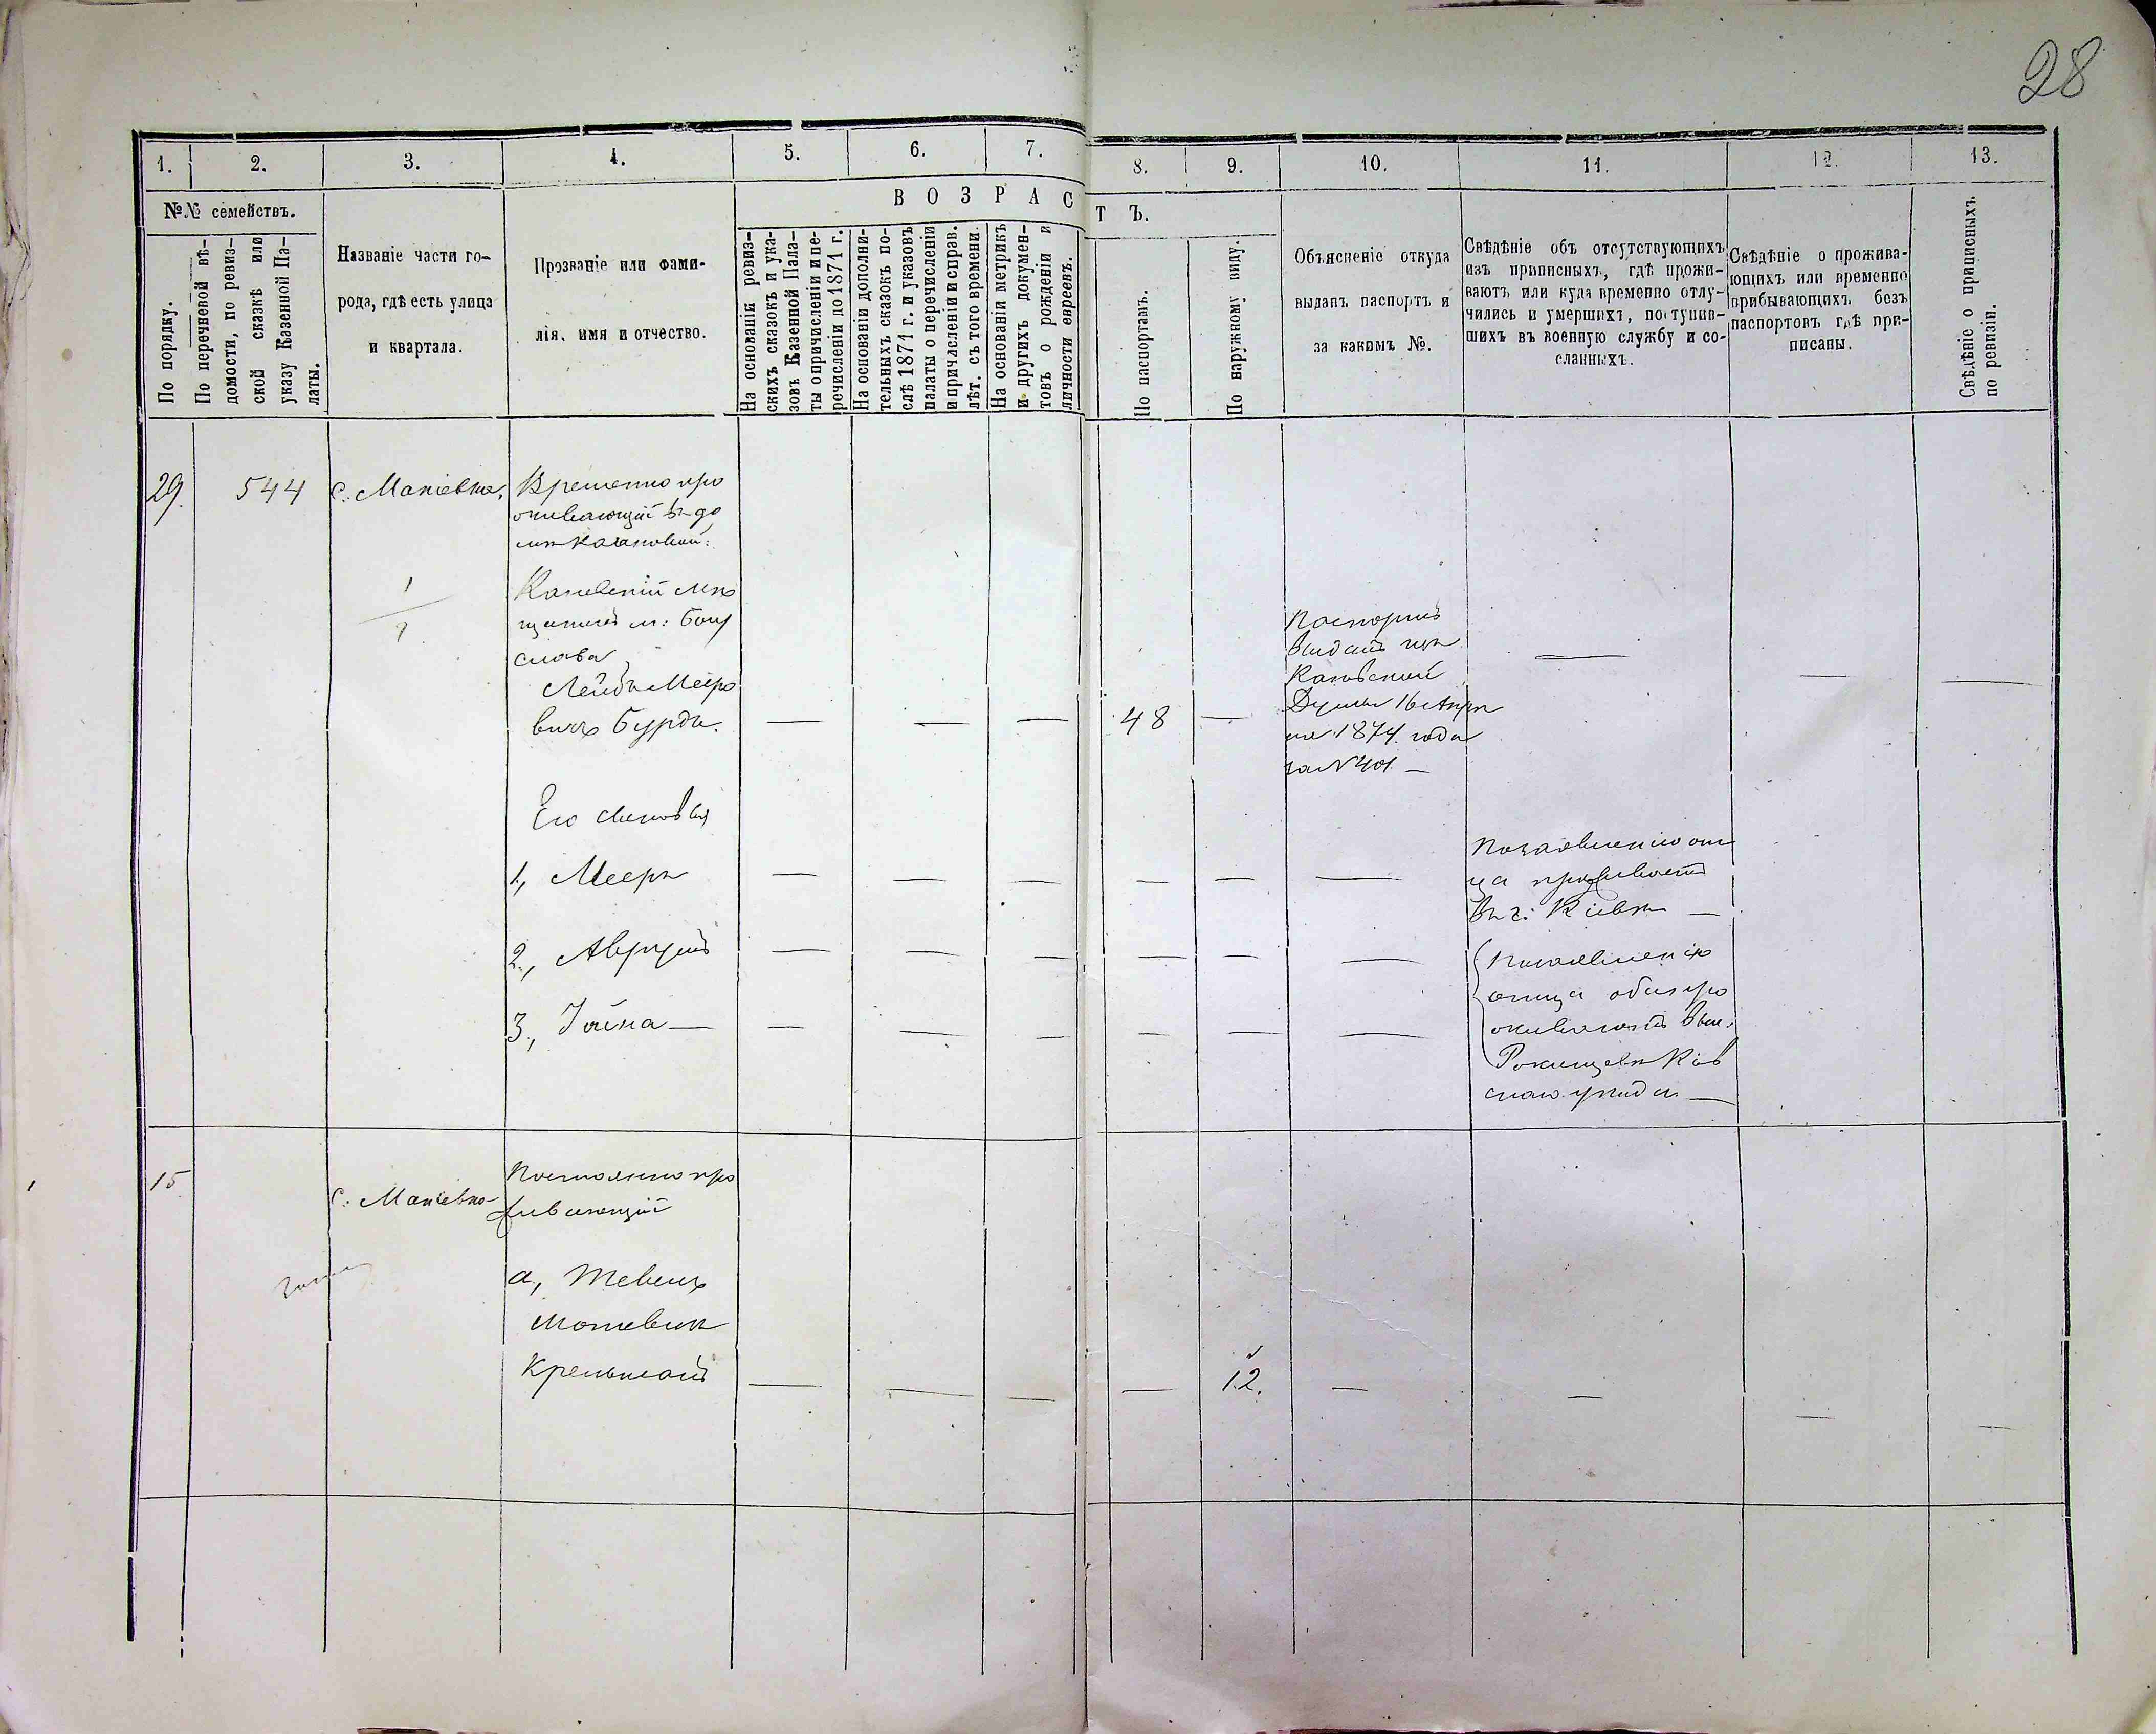 28
1.
2.
3.
4.
5.
6.
7.
8.
9.
10.
11.
12.
13.
№№ семействъ.
По порядку.
По перечневой вѣ-
домости, по ревиз-
ской сказкѣ или
указу Казенной Па-
латы.
Названіе части го-
рода, гдѣ есть улица
и квартала.
Прозваніе или фами-
лія, имя и отчество.
ВОЗРАСТЪ.
На основаніи ревиз-
скихъ сказокъ и ука-
зовъ Казенной Пала-
ты о причисленіи и пе-
речисленіи до 1871 г.
На основаніи дополни-
тельныхъ сказокъ по-
слѣ 1871 г. и указовъ
палаты о перечисленіи
и причисленіи и справ.
лѣт. съ того времени.
На основаніи метрикъ
и другихъ докумен-
товъ о рожденіи и
личности евреевъ.
По паспортамъ.
По наружному виду.
Объясненіе откуда
выданъ паспортъ и
за какимъ №.
Свѣдѣніе объ отсутствующихъ
изъ приписныхъ, гдѣ прожи-
ваютъ или куда временно отлу-
чились и умершихъ, поступив-
шихъ въ военную службу и со-
сланныхъ.
Свѣдѣніе о прожива-
ющихъ или временно
прибывающихъ безъ
паспортовъ гдѣ при-
писаны.
Свѣдѣніе о приписныхъ
по ревизіи.
29.
544
С. Макіевка.
Временно про
живающій въ до
мѣ
Каневскій мѣ
щанинъ м: Богу
слава
Лейба Мееро
вичъ Бурда.
—
—
—
48
—
Паспортъ
выданъ изъ
Каневской
Думы 16 Апрѣ
ля 1874 года
за № 401 —
—
—
—
Его сыновья
1, Мееръ
—
—
—
—
—
—
По заявленію от
ца проживаетъ
въ г: Кіевѣ —
2, Аврумъ
—
—
—
—
—
—
По заявленію
отца оба про
живаютъ въ м.
Кіев
скаго уѣзда —
3, Іойна —
—
—
—
—
—
—
15
С: Макіевка
Постоянно про
живающій
а,
Мошевичъ
—
—
—
—
12.
—
—
—
—